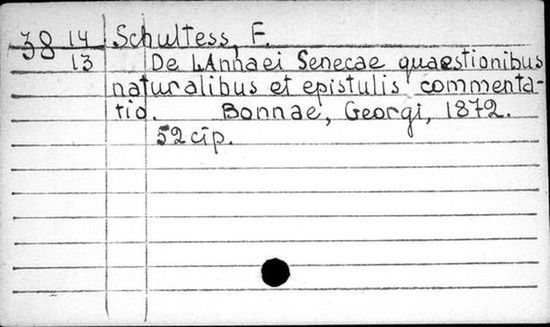 38 14 Schultess, F.
13 De L. Annaei Senecae quaestionibus
naturalibus et epistulis commenta-
tio. Bonnae, Georgi, 1872.
52 cip.